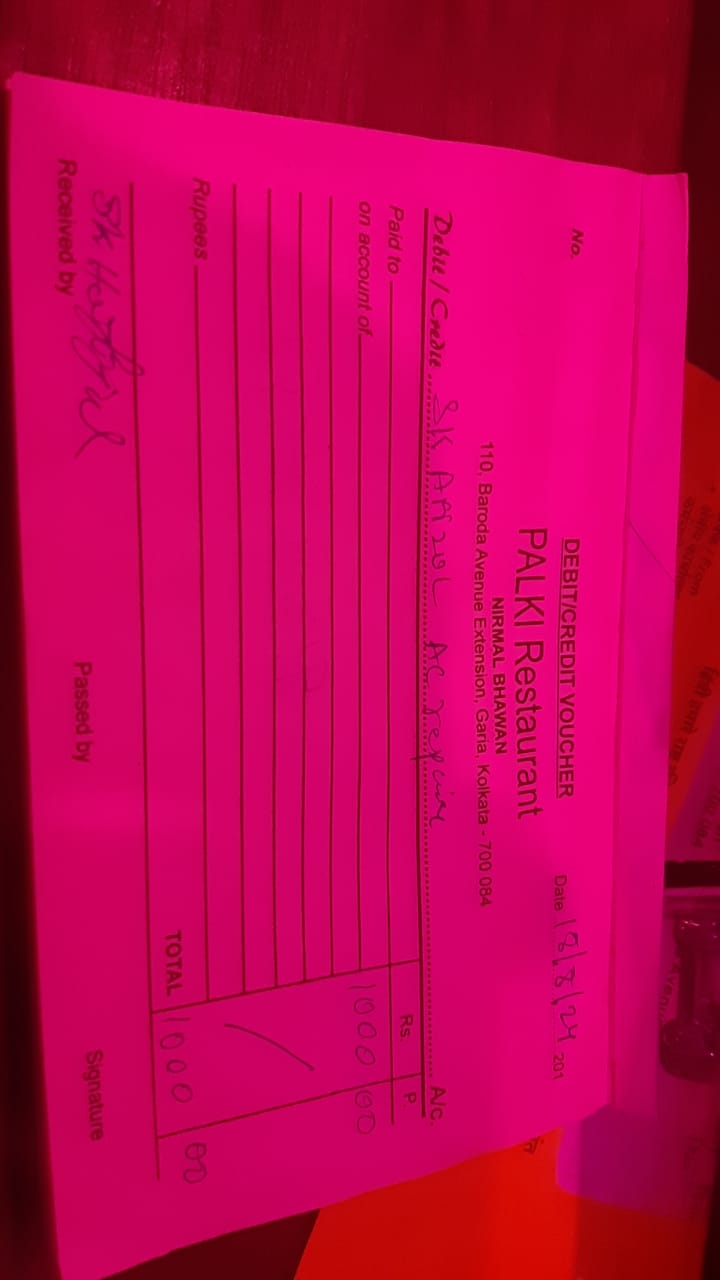 DEBIT/CREDIT VOUCHER
No.
Date 18/8/24 201
PALKI Restaurant
NIRMAL BHAWAN
110, Baroda Avenue Extension, Garia, Kolkata - 700 084
Debit / Credit SK AC repair A/c.
Rs. P.
Paid to
on account of 1000 00
Rupees
TOTAL 1000 00
SK
Received by Passed by Signature